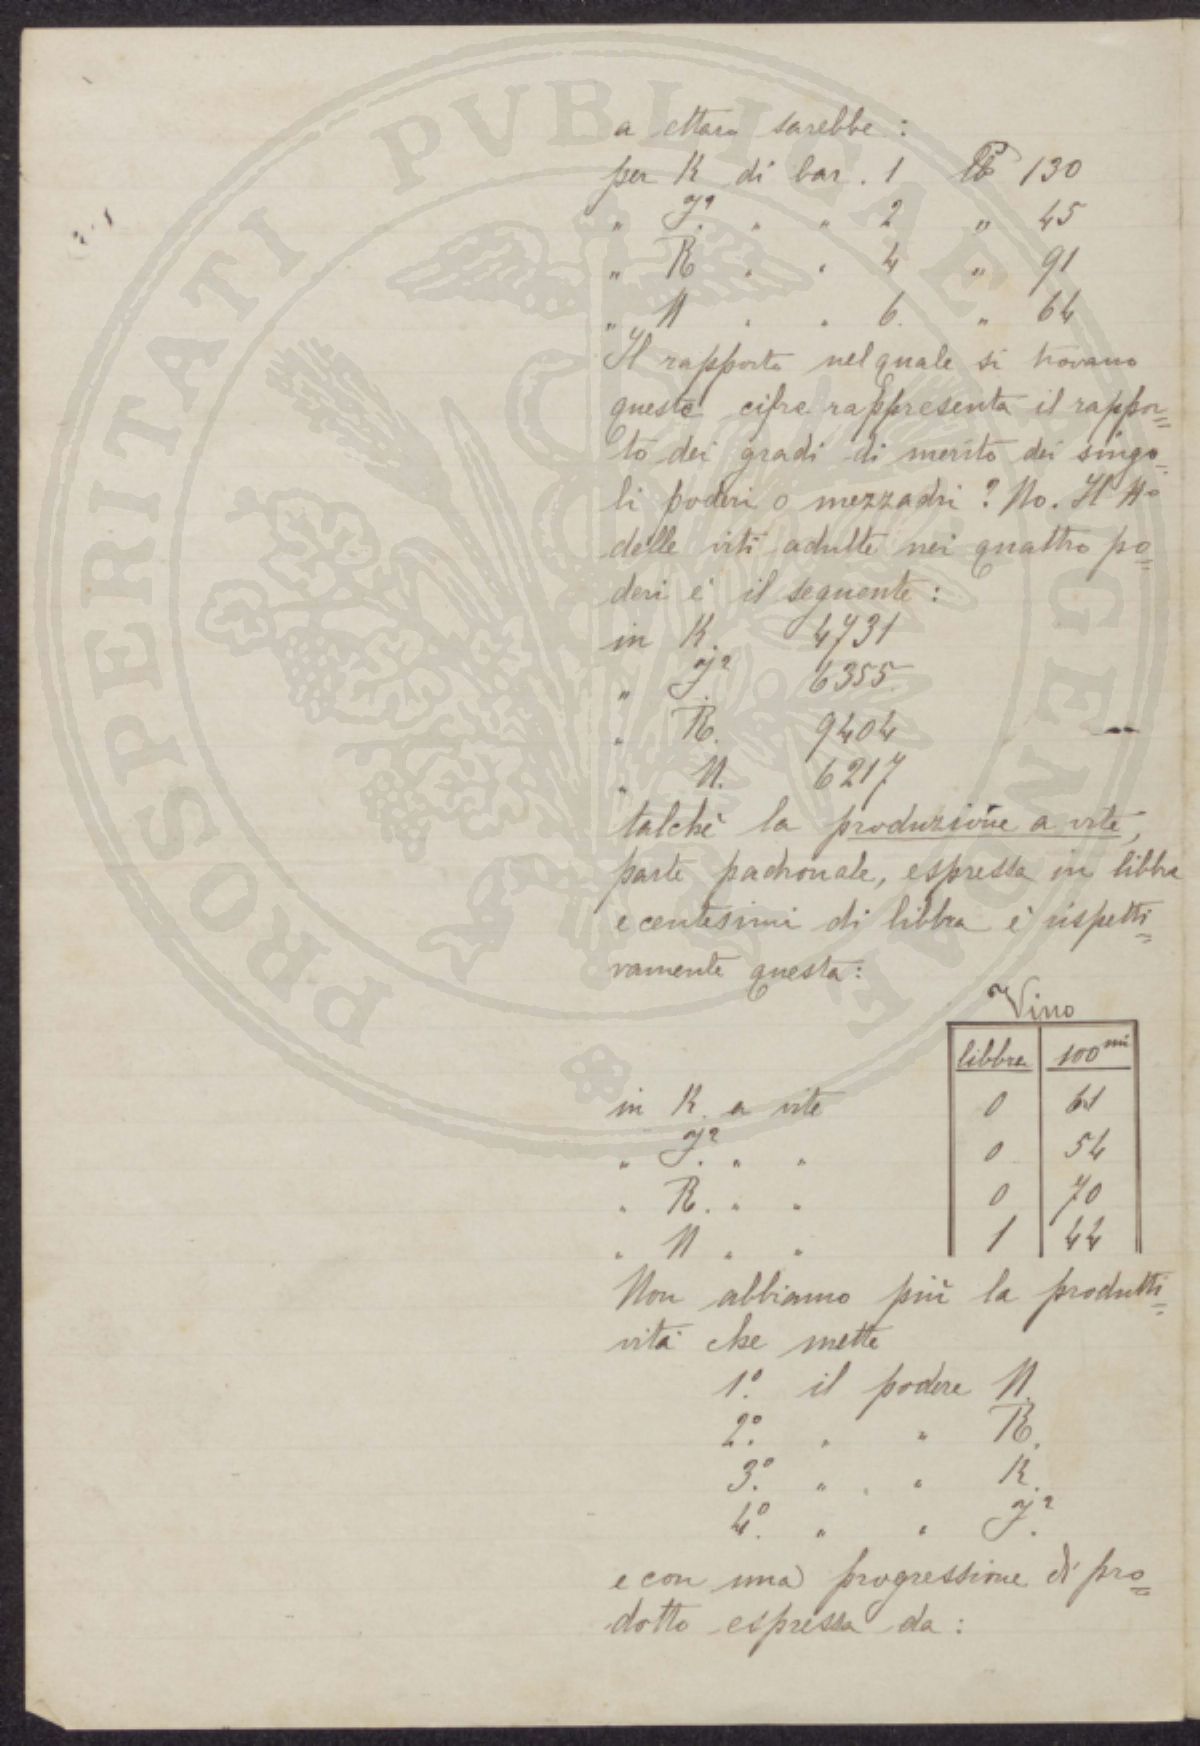 a ettaro sarebbe:
per K di bar. 1 ℔ 130
" J² " " 2 " 45
" R " " 4 " 91
" N " " 6. " 64
Il rapporto nel quale si trovano
queste cifre rappresenta il rappor=
to dei gradi di merito dei singo=
li poderi o mezzadri? No. Il N°
delle viti adulte nei quattro po=
deri è il seguente:
in K. 4731
" J². 6355
" R. 9404
" N. 6217
talchè la produzione a vite,
parte padronale, espressa in libbre
e centesimi di libbra è rispetti=
vamente questa:
Vino
libbre 100mi
in K. a vite 0 61
" J². " " 0 54
" R. " " 0 70
" N " " 1 44
Non abbiamo più la produtti=
vità che mette
1°. il podere N.
2°. " " R.
3°. " " K.
4°. " " J².
e con una progressione di pro=
dotto espressa da:
PROSPERITATI PVBLICAE AVGENDAE